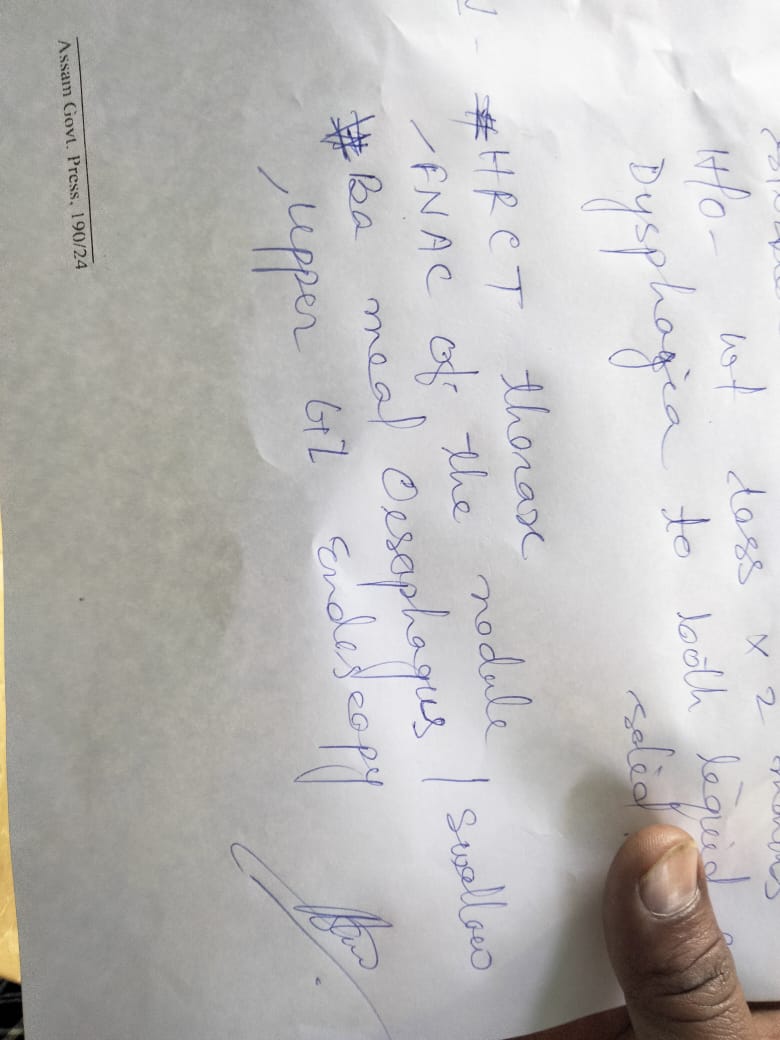 H/O - wt loss x 2 months
Dysphagia to both liquid
solid.
# HRCT thorax
- FNAC of the nodule
# Ba meal Oesophagus / swallow
, Upper GI Endoscopy
Assam Govt. Press, 190/24